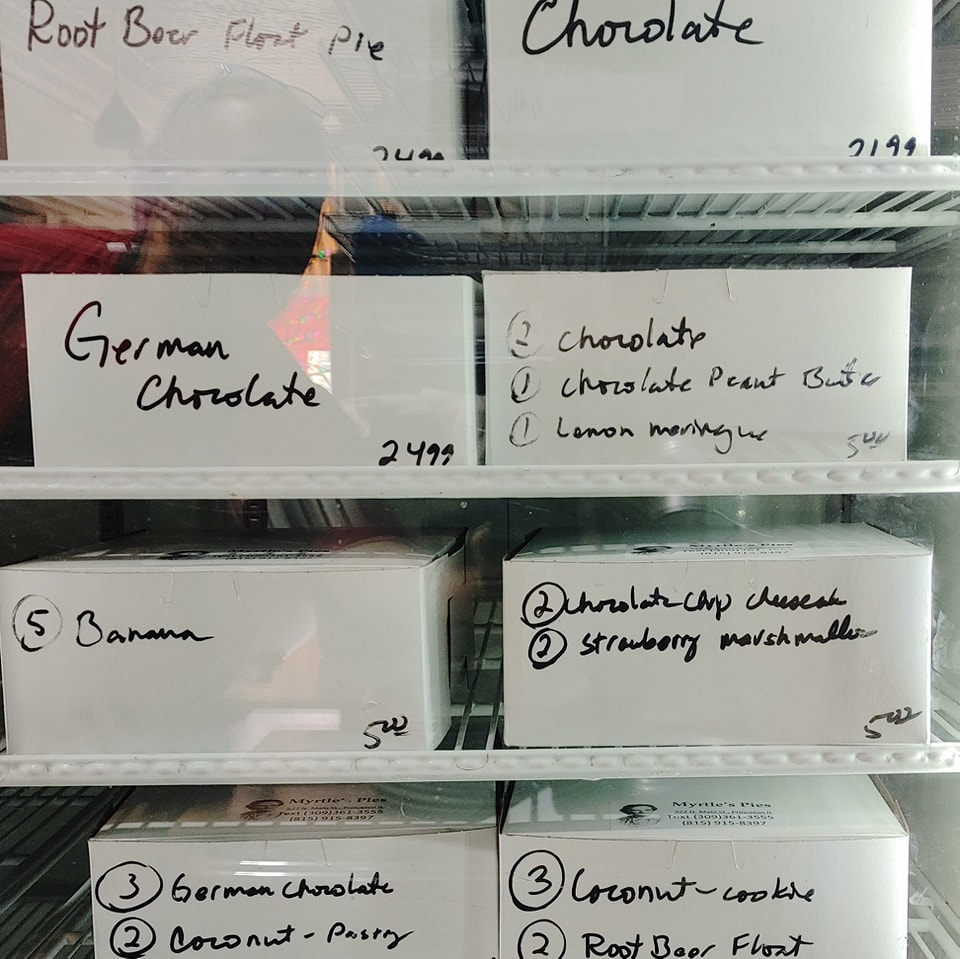 Root Beer Float Pie
2499
Chocolate
2199
German
Chocolate
2499
2 chocolate
1 chocolate Peanut Butter
1 Lemon meringue
500
5 Banana
500
Myrtle's Pies
(815) 915-8397
2 chocolate chip cheesecake
2 strawberry marshmallow
500
Myrtle's Pies
Text (309)361-3555
(815) 915-8397
3 German chocolate
2 Coconut - Pastry
Myrtle's Pies
Text (309)361-3555
(815) 915-8397
3 Coconut - cookie
2 Root Beer Float